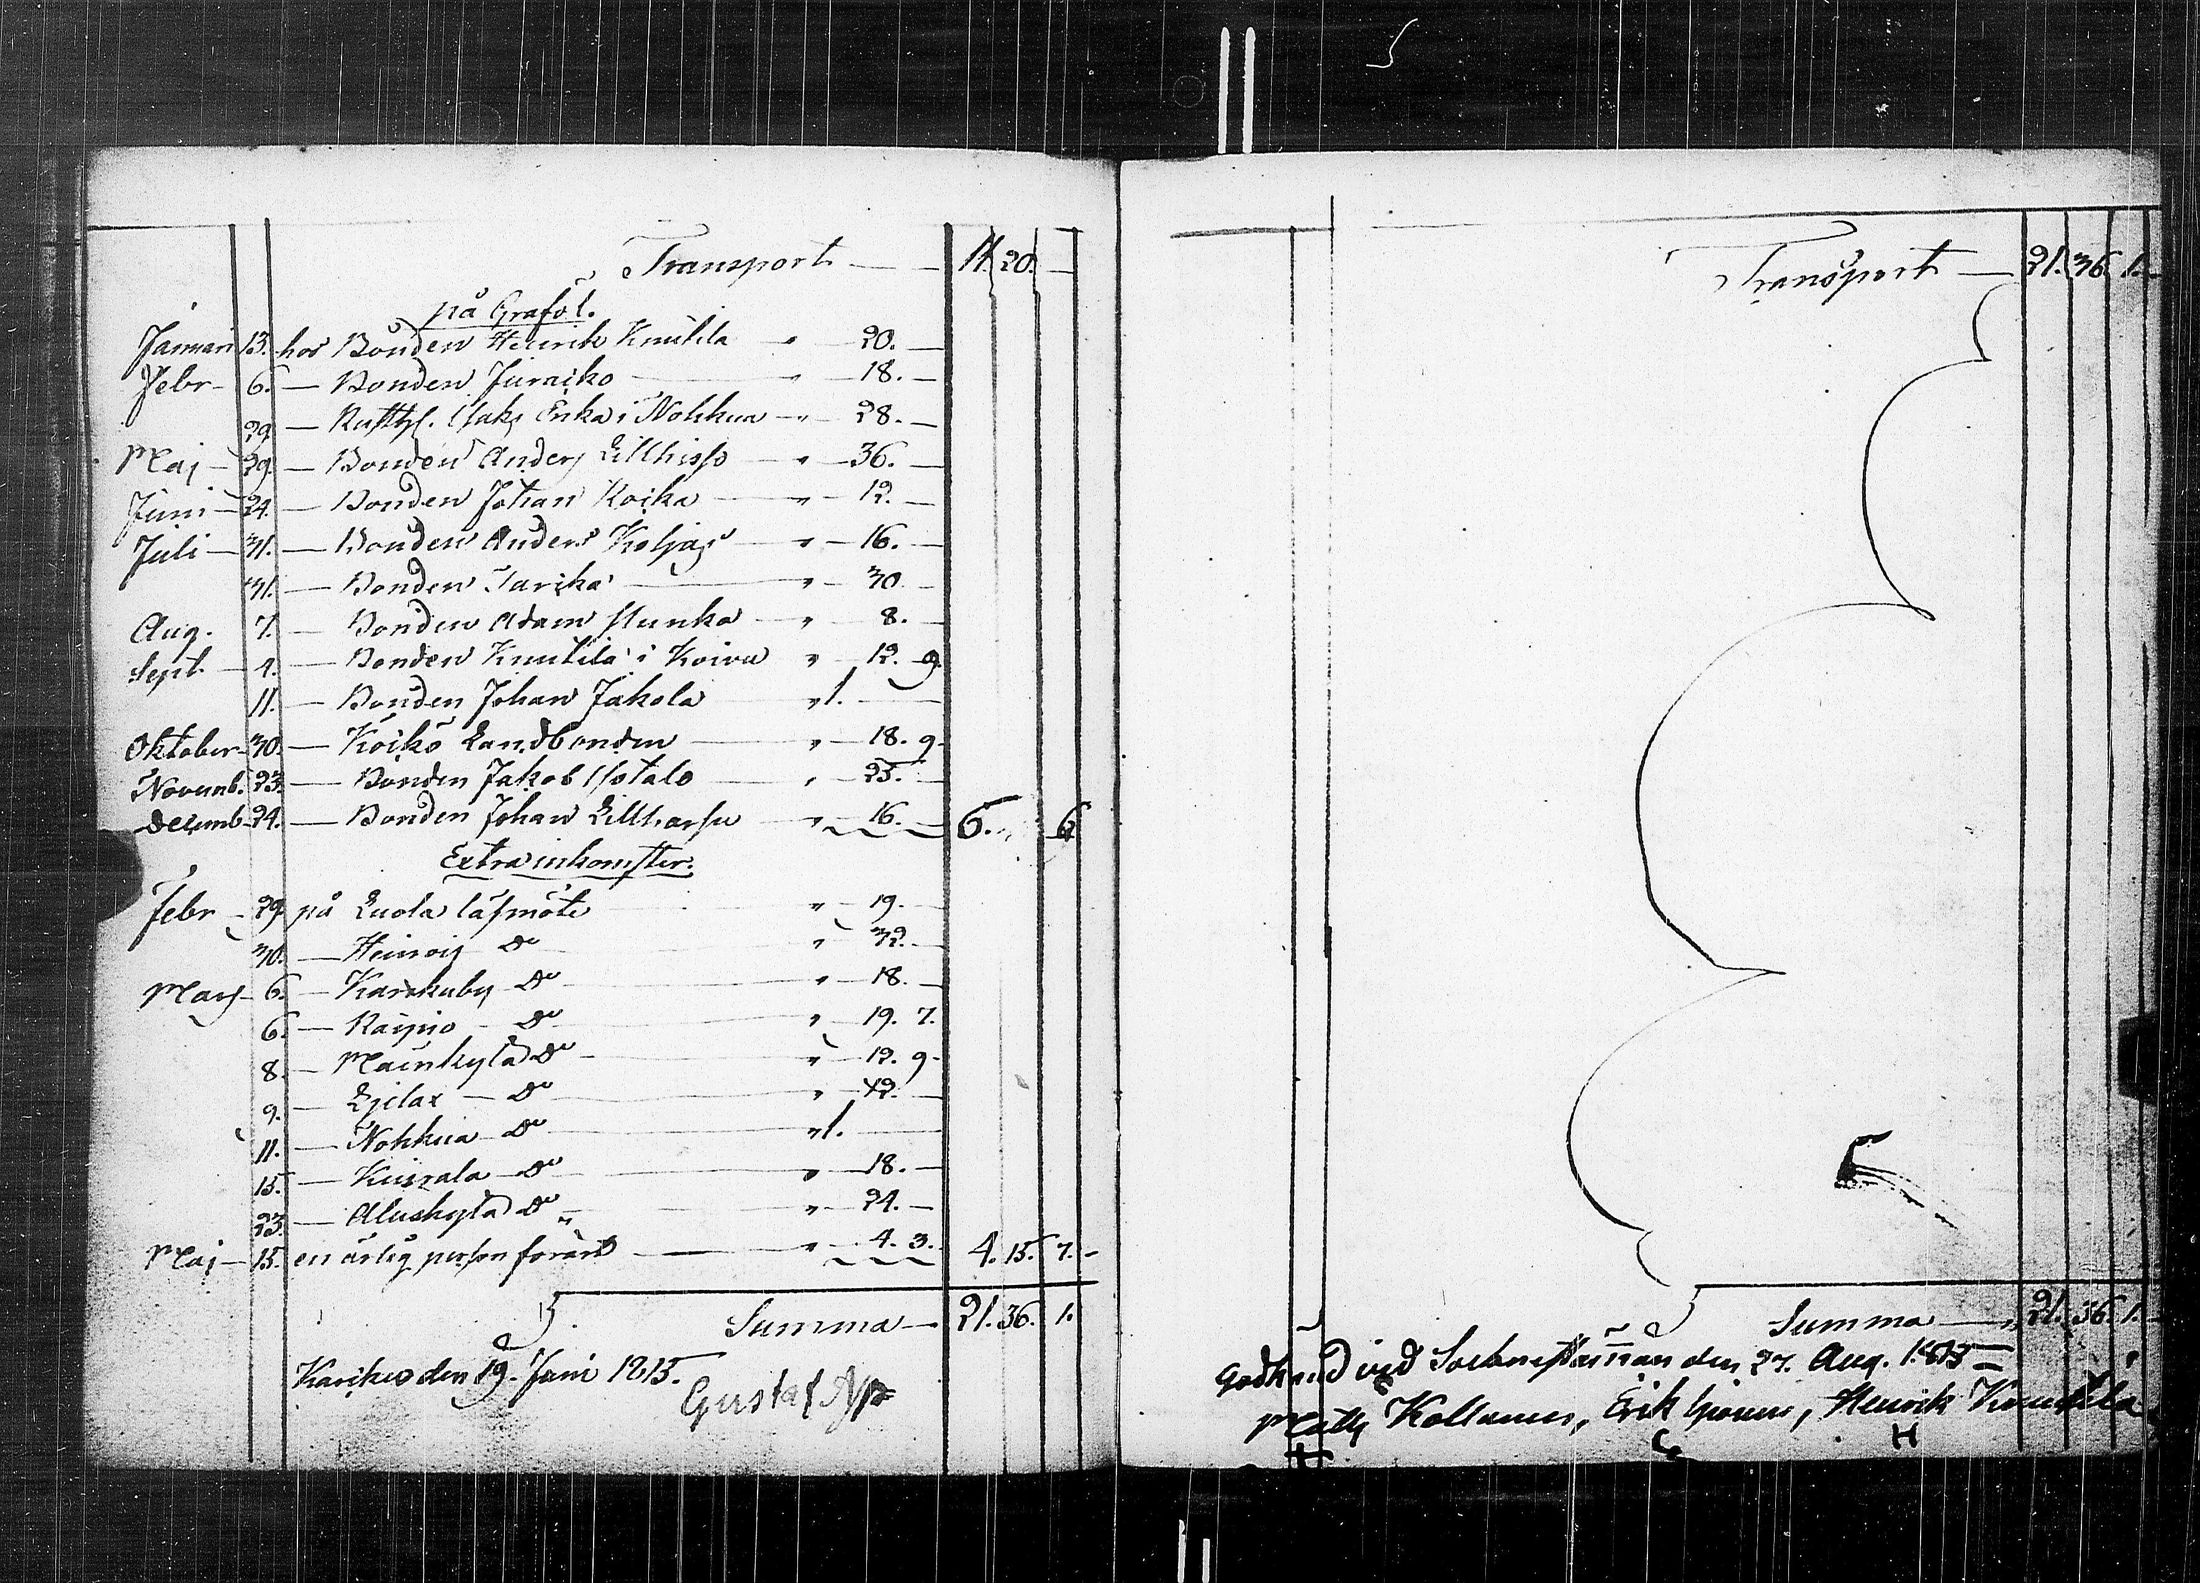 Transport — — 11. 20. —
på Graföl.
Januari 13. hos Bonden Henrik Knutila " — 20. —
Febr — 6. — Bonden Juraiko — " — 18. —
29 — Rusth. Isaks Erika i Nohkua — " — 28. —
Maj — 29. — Bonden Anders Lillhisso — " — 36. —
Juni — 24. — Bonden Johan Koika — " — 12. —
Juli — 31. — Bonden Anders Koljas — " — 16. —
31. — Bonden Tarika — " — 30 —
Aug. 7. — Bonden Adam Munka — " — 8. —
Sept. — 4. — Bonden Knutila i Koivu " — 12. 9.
11. — Bonden Johan Jakola " 1. —
Oktober — 30. — Koikö Landbonden — " — 18. 9.
Novemb. 23. — Bonden Jakob Isotalo — " — 25. —
Decemb. 24. — Bonden Johan Lillharsu — " 16. — 6. " 6
Extra inkomster.
Febr — 29 på Luola läsmöte " — 19. —
30. — Heinois Do — " — 32. —
Mars — 6. — Karskuby Do — " — 18. —
6. — Raipio — Do — " — 19. 7.
8. — Mainkylä Do — " — 12. 9.
9. — Ljilax — Do — " — 42. —
11. — Nohkua — Do — " 1. —
15. — Kuirala — Do — " — 18. —
23. — Aluskylä Do — " — 24. —
Maj — 15. en ärlig person förärt — " — 4. 3. 4. 15. 7. —
Summa — 21. 36. 1.
Karikes den 19. Juni 1815.
Gustaf
Transport — 21. 36. 1. —
Summa — " 21. 36. 1. —
Godkänd vid Sockenstämman den 27. Aug. 1815
Matts Kollanus, Erik, Henrik Knuutila
H